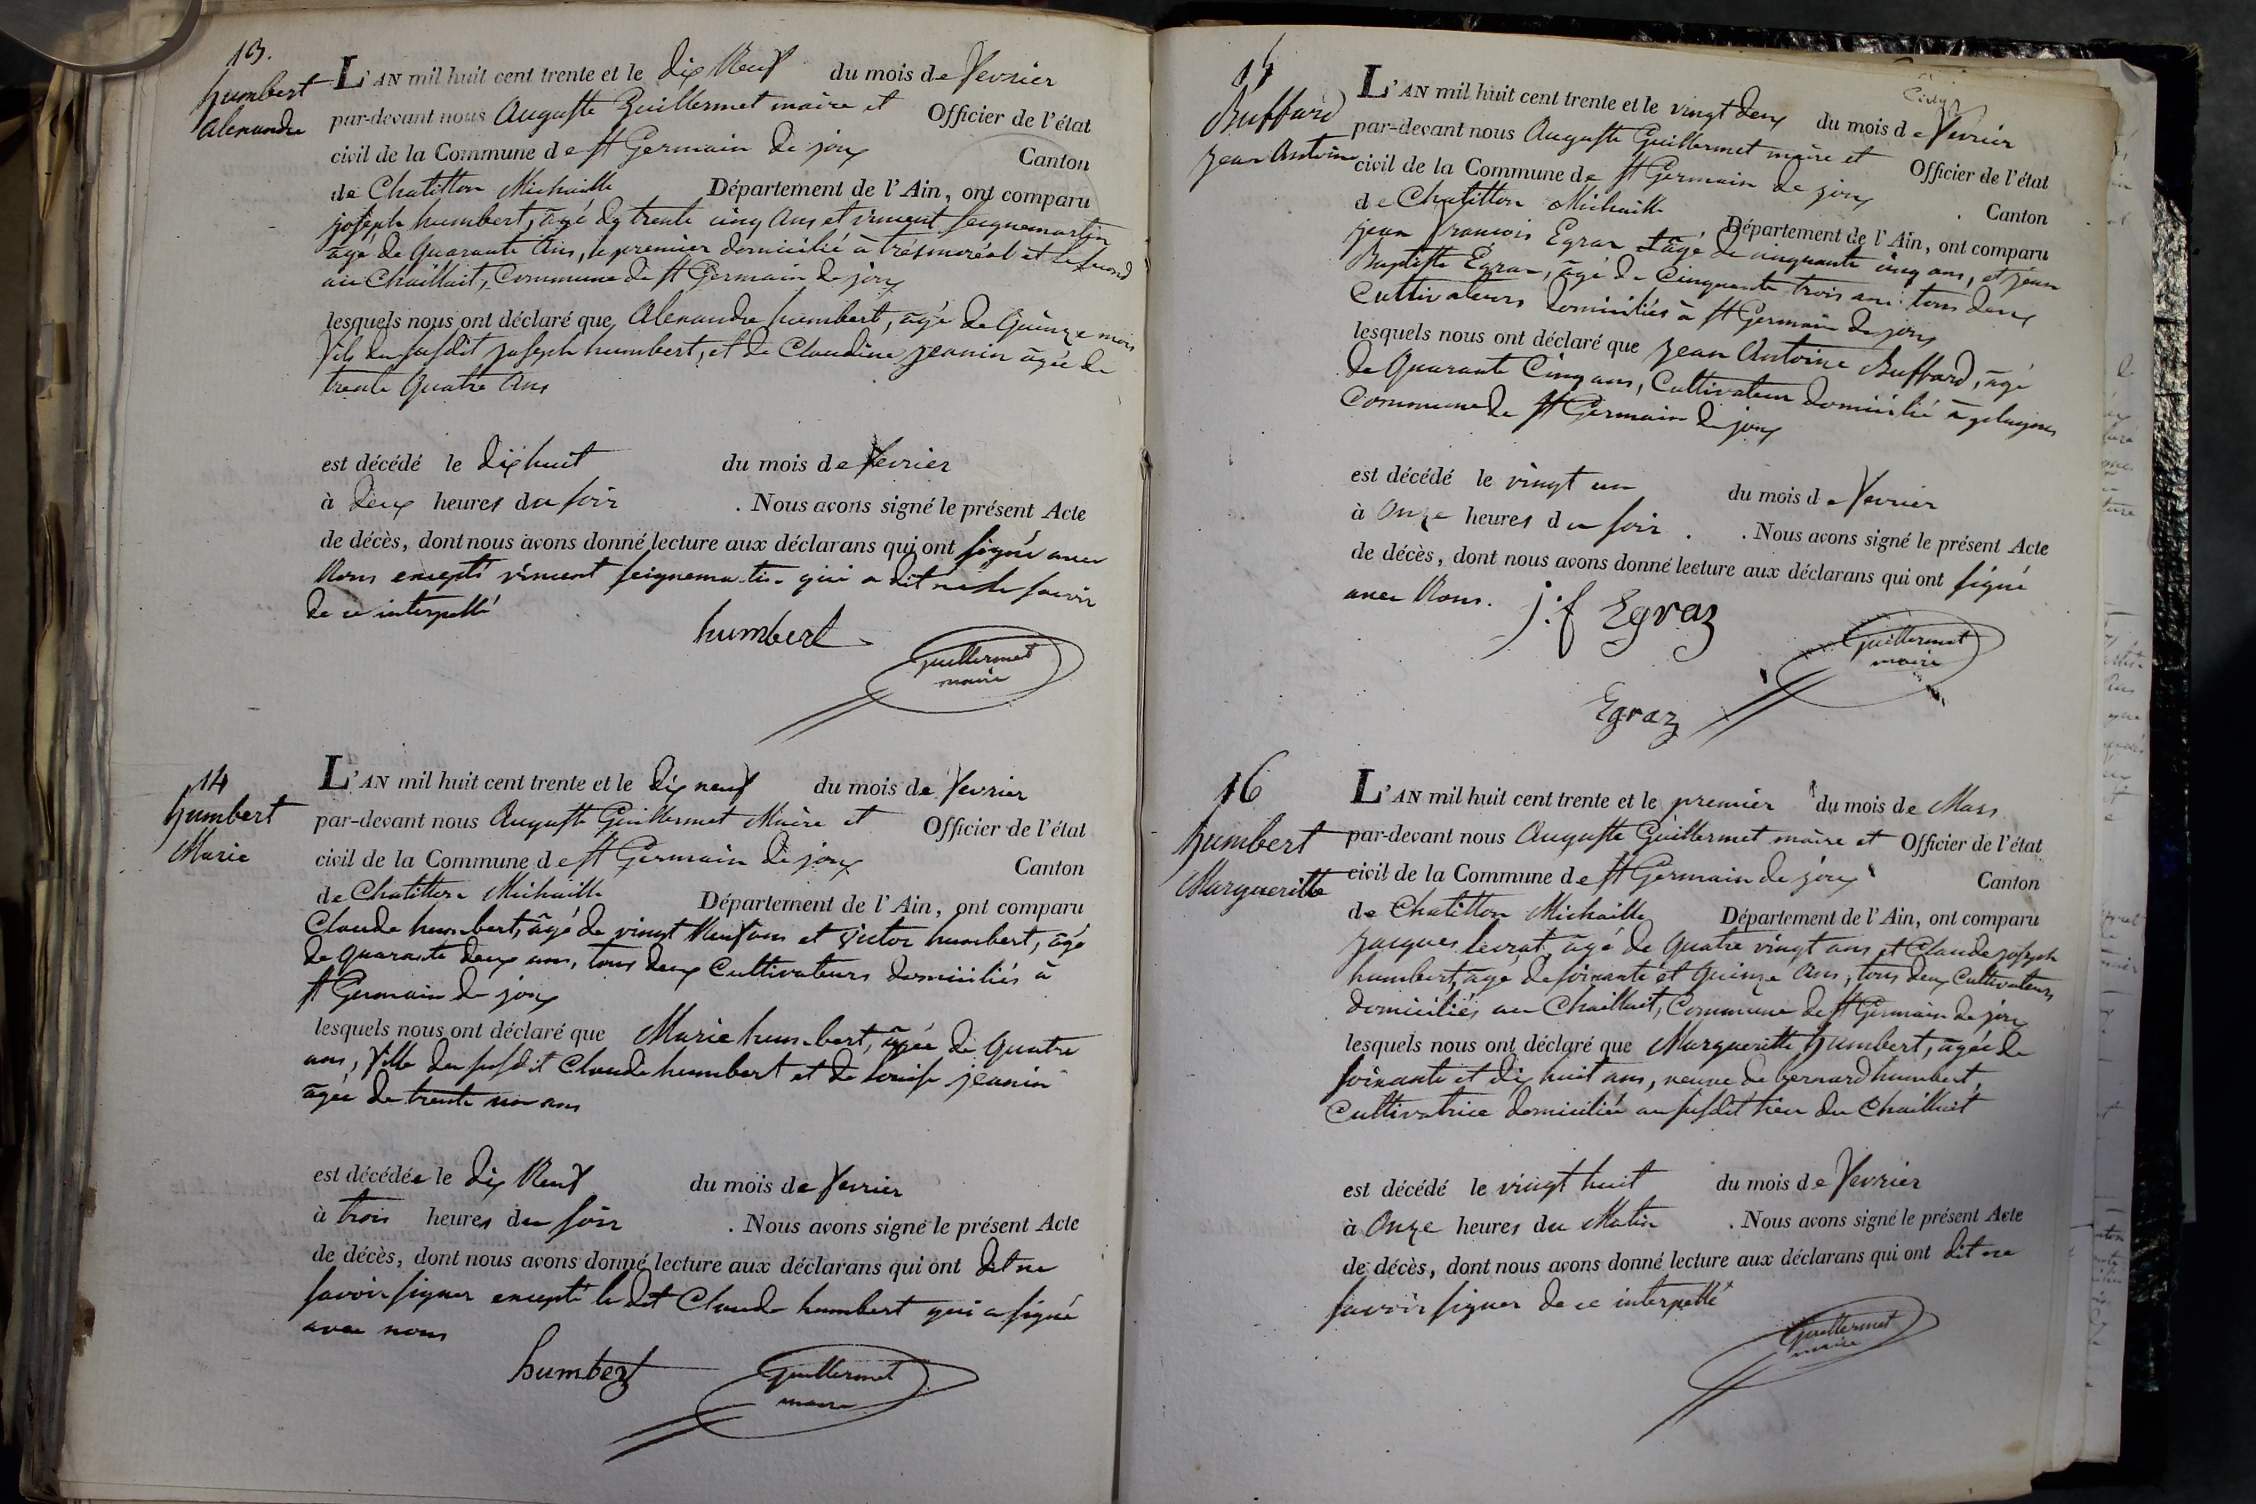 13.
humbert
alexandre
L'AN mil huit cent trente et le dix Neuf du mois de fevrier
par-devant nous Auguste Guillermet maire et Officier de l'état
civil de la Commune de St Germain de joux Canton
de Chatillon Michaille Département de l'Ain, ont comparu
joseph humbert, âgé de trente cinq ans et vincent seignemartin
âgé de Quarante Ans, le premier domicilié à trésmoréal et le second
au Chailluit, Commune de St Germain de joux
lesquels nous ont déclaré que Alexandre humbert, âgé de Quinze mois
fils du susdit joseph humbert, et de Claudine jeanin âgée de
trente Quatre Ans
est décédé le dix huit du mois de fevrier
à deux heures du soir . Nous avons signé le présent Acte
de décès, dont nous avons donné lecture aux déclarans qui ont signé avec
Nous excepté vincent seignemartin qui a dit ne le savoir
de ce interpellé
humbert
Guillermet
maire
14
humbert
Marie
L'AN mil huit cent trente et le dix neuf du mois de fevrier
par-devant nous Auguste Guillermet Maire et Officier de l'état
civil de la Commune de St Germain de joux Canton
de Chatillon Michaille Département de l'Ain, ont comparu
Claude humbert, âgé de vingt Neuf ans et victor humbert, âgé
de quarante deux ans, tous deux Cultivateurs domiciliés à
St Germain de joux
lesquels nous ont déclaré que Marie humbert, âgée de Quatre
ans, fille du susdit Claude humbert et de Louise jeanin
âgée de trente un ans
est décédée le dix Neuf du mois de fevrier
à trois heures du soir . Nous avons signé le présent Acte
de décès, dont nous avons donné lecture aux déclarans qui ont dit ne
savoir signer excepté le dit Claude humbert qui a signé
avec nous
humbert
Guillermet
maire
15
Buffard
jean Antoine
L'AN mil huit cent trente et le vingt deux du mois de fevrier
par-devant nous Auguste Guillermet maire et Officier de l'état
civil de la Commune de St Germain de joux Canton
de Chatillon Michaille Département de l'Ain, ont comparu
jean francois Egraz âgé de cinquante cinq ans, et jean
Baptiste Egraz, âgé de Cinquante trois ans tous deux
Cultivateurs domiciliés à St Germain de joux
lesquels nous ont déclaré que jean Antoine Buffard, âgé
de Quarante Cinq ans, Cultivateur domicilié à
Commune de St Germain de joux
est décédé le vingt un du mois de fevrier
à Onze heures du soir . Nous avons signé le présent Acte
de décès, dont nous avons donné lecture aux déclarans qui ont signé
avec Nous.
j.f Egraz
Guillermet
maire
Egraz
16
humbert
Margueritte
L'AN mil huit cent trente et le premier du mois de Mars
par-devant nous Auguste Guillermet maire et Officier de l'état
civil de la Commune de St Germain de joux Canton
de Chatillon Michaille Département de l'Ain, ont comparu
jacques levrat, âgé de quatre vingt ans et Claude joseph
humbert, âgé de soixante et Quinze Ans, tous deux Cultivateurs
domiciliés au Chailluit, Commune de St Germain de joux
lesquels nous ont déclaré que Margueritte humbert, âgée de
soixante et dix huit ans, veuve de bernard humbert,
Cultivatrice domiciliée au susdit lieu du Chailluit
est décédé le vingt huit du mois de fevrier
à Onze heures du Matin . Nous avons signé le présent Acte
de décès, dont nous avons donné lecture aux déclarans qui ont dit ne
savoir signer de ce interpellé
Guillermet
maire